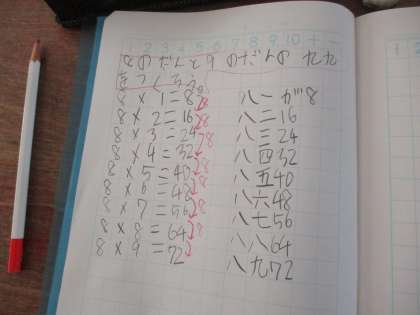 1 2 3 4 5 6 7 8 9 10
8のだんと9のだんの九九
をつくろう。
8×1=8
8×2=16
8×3=24
8×4=32
8×5=40
8×6=48
8×7=56
8×8=64
8×9=72
8
8
8
8
8
8
8
8
八一が8
八二16
八三24
八四32
八五40
八六48
八七56
八八64
八九72